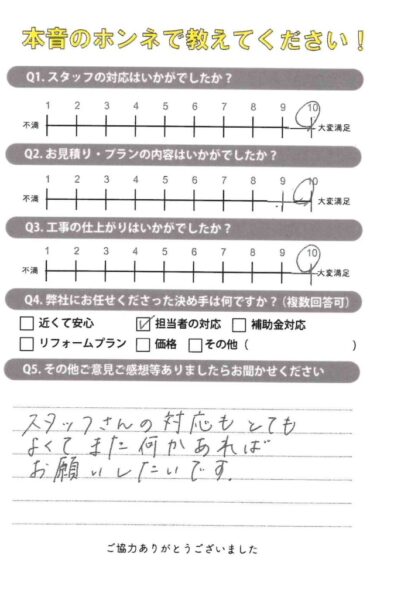 本音のホンネで教えてください！
Q1. スタッフの対応はいかがでしたか？
1 2 3 4 5 6 7 8 9 10
不満 大変満足
Q2. お見積り・プランの内容はいかがでしたか？
1 2 3 4 5 6 7 8 9 10
不満 大変満足
Q3. 工事の仕上がりはいかがでしたか？
1 2 3 4 5 6 7 8 9 10
不満 大変満足
Q4. 弊社にお任せくださった決め手は何ですか？（複数回答可）
□ 近くて安心 ☑ 担当者の対応 □ 補助金対応
□ リフォームプラン □ 価格 □ その他（ ）
Q5. その他ご意見ご感想等ありましたらお聞かせください
スタッフさんの対応もとても
よくてまた何かあれば
お願いしたいです。
ご協力ありがとうございました